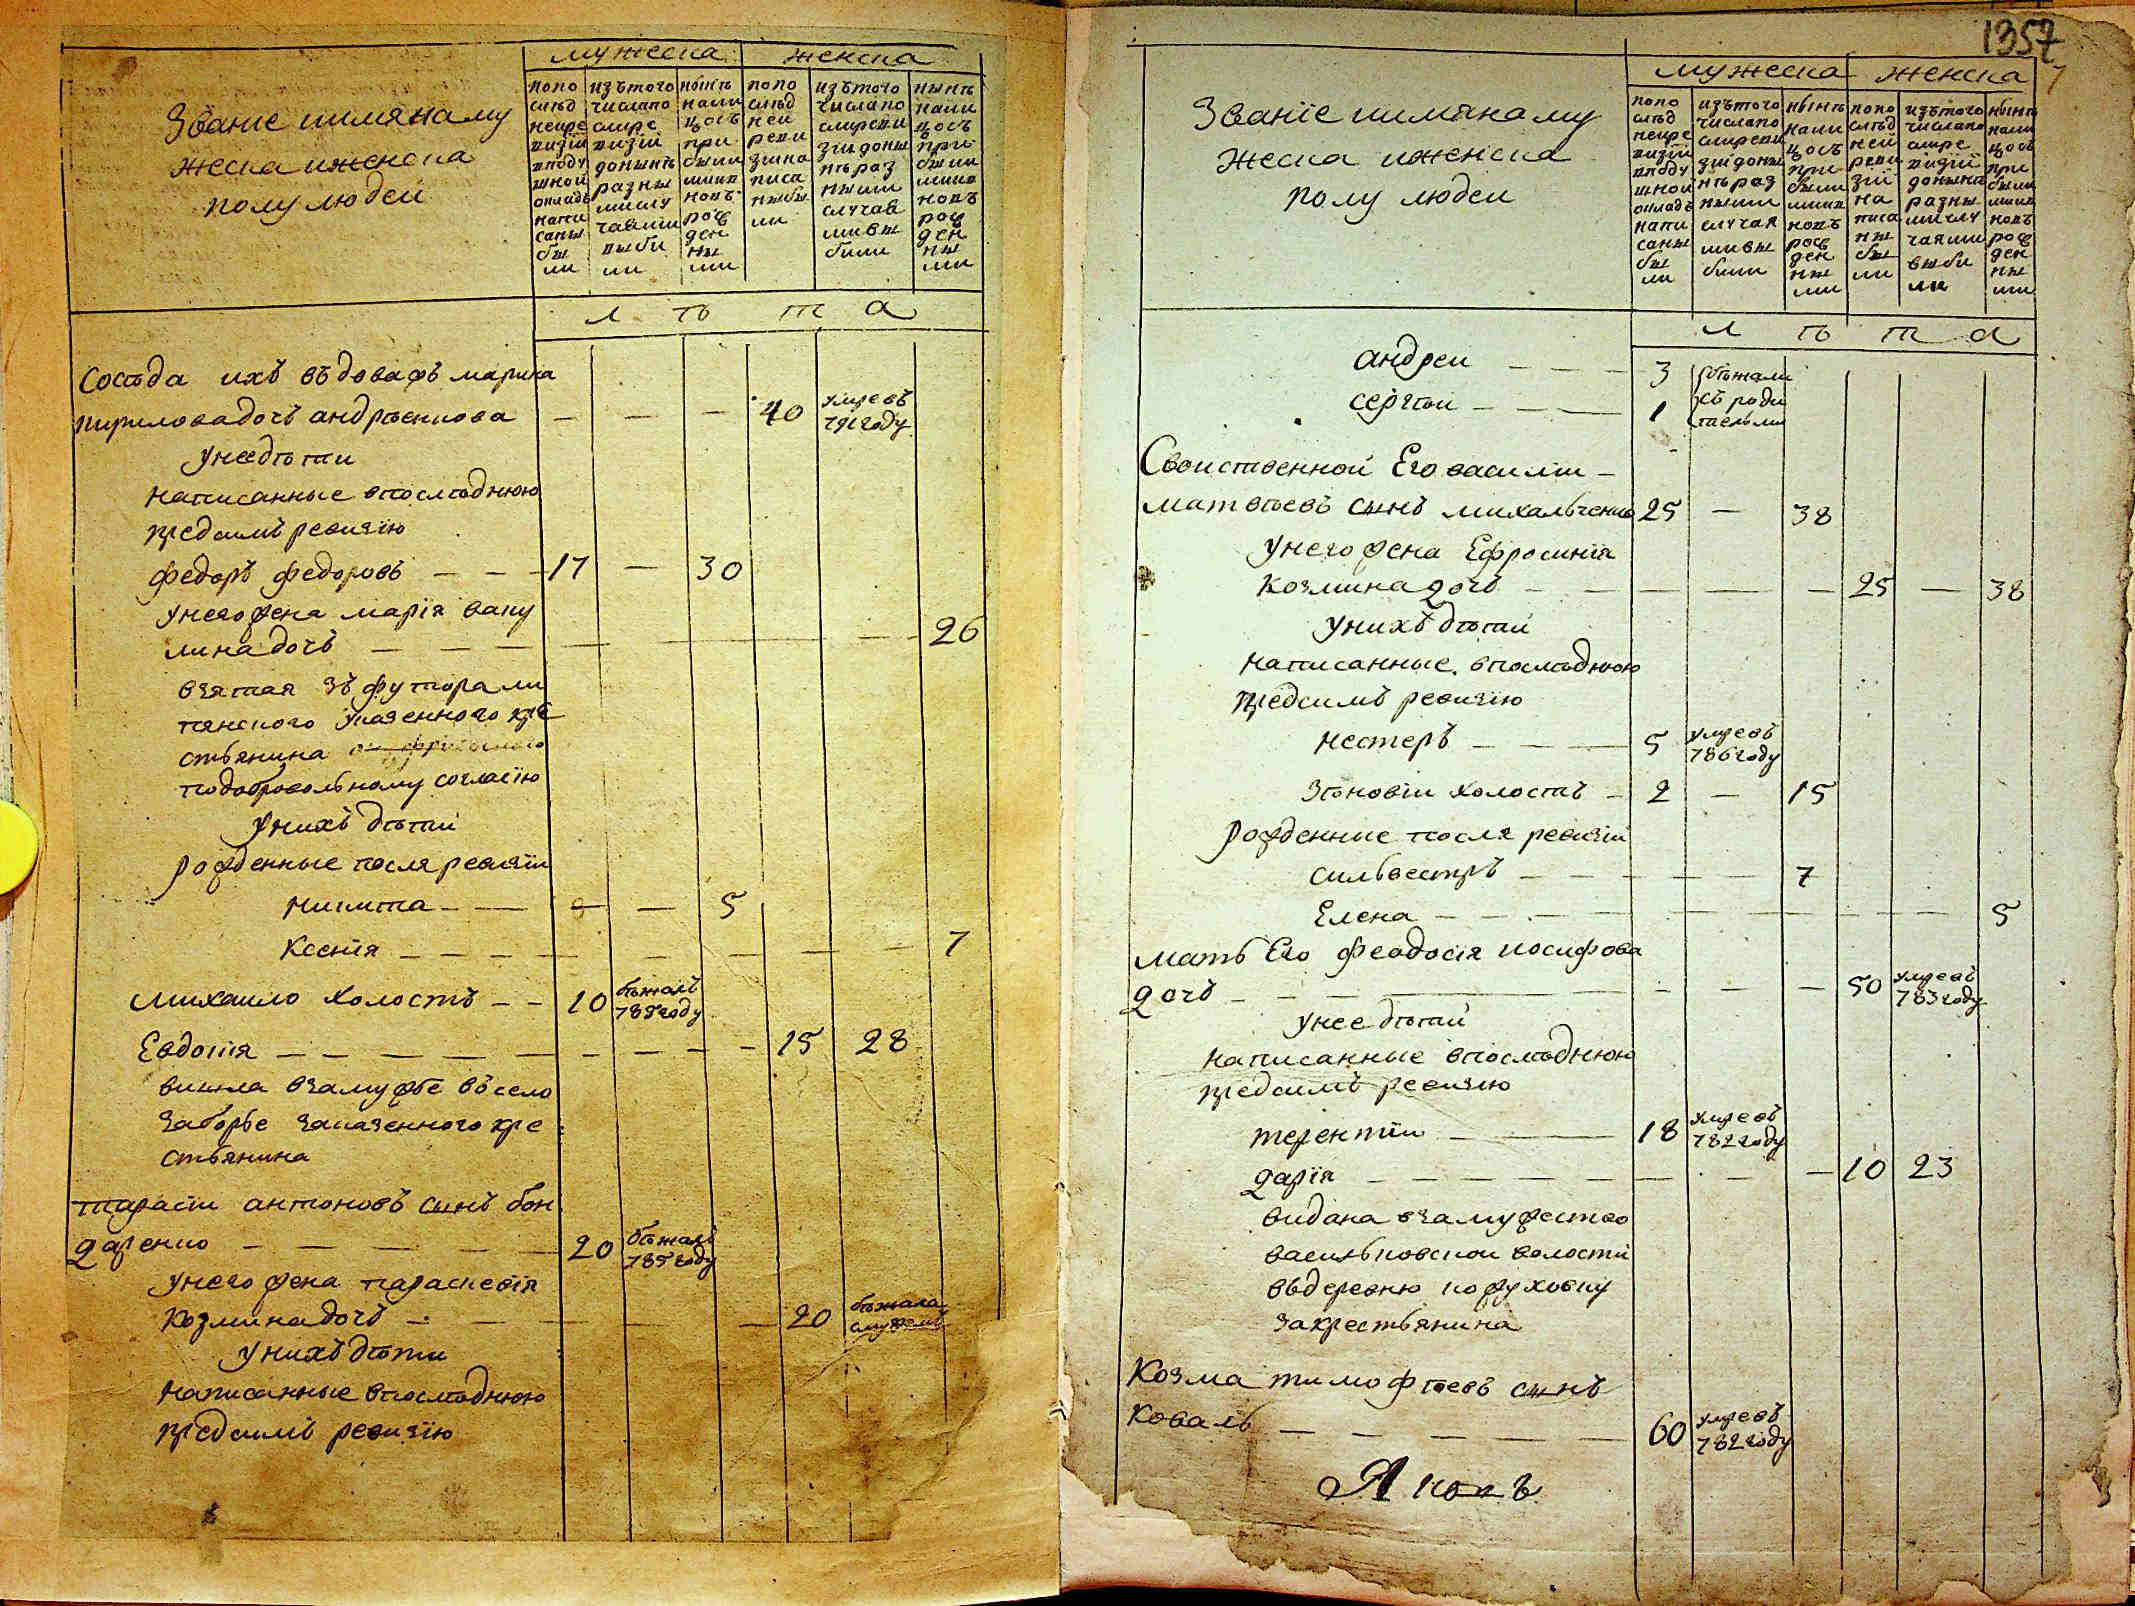 мужеска женска
Званіе иимяна му
жеска иженска
полу людей
попо
слѣд
неире
визіи
вподу
шнои
окладъ
напи
саны
бы
ли
изътого
числапо
слире
визіи
донынѣ
разны
мислу
чаями
выбы
ли
нынѣ
нали
цось
при
были
мики
новъ
рож
ден
ны
ми
попо
слѣд
неи
реви
зіина
писа
ныбы
ли
изътого
числапо
слиреви
зіидоны
нѣраз
ными
случая
мивы
были
нынѣ
нали
цось
при
были
мики
новъ
рож
ден
ны
ми
л ѣ т а
Сосѣда ихъ въдовафъ марина
кириловадочъ андрѣенкова — — — 40 умревъ
791году
унеедѣти
написанные впослѣднюю
предсимъ ревизію
федоръ федоровъ — — — 17 — 30
унегожена марія ваку
линадочъ — — — — — — 26
взятая зъ футора ли
пянского указенного кре
стьянина
подобровольному согласію
унихъ дѣти
рожденные послѣревизіи
никита — — — — 5
Ксенія — — — — — — — — 7
михаило холостъ — — 10 бѣжалъ
785году
Евдокія — — — — — — — — 15 28
вишла взамужъе въсело
заборье заказенного кре
стьянина
тарасіи антоновъ сынъ бон
даренко — — — — — 20 бѣжалъ
785году
унего жена параскевія
Козминадочъ — — — — — 20 бѣжала
смужемъ
унихъ дѣти
написанные впослѣднюю
предсимъ ревизію
1357
7
мужеска женска
Званіе иимяна му
жеска иженска
полу людей
попо
слѣд
неире
визіи
вподу
шнои
окладъ
напи
саны
бы
ли
изътого
числапо
слиреви
зіидоны
нѣраз
ными
случая
мивы
были
нынѣ
нали
цось
при
были
мики
новъ
рож
ден
ны
ми
попо
слѣд
неи
реви
зіи
на
писа
ны
бы
ли
изътого
числапо
слире
визіи
донынѣ
разны
мислу
чаями
выбы
ли
нынѣ
нали
цось
при
были
мики
новъ
рож
ден
ны
ми
л ѣ т а
андреи — — — — 3 збѣжали
сергіи — — — — 1 съ роди
тельми
Своиственной Его василіи —
матвѣевъ сынъ михальченко 25 — 38
унего жена Ефросинія
Козмина дочъ — — — — — 25 — 38
унихъ дѣти
написанные впослѣднюю
предсимъ ревизію
нестеръ — — — — 5 умревъ
786году
Зѣновіи холостъ — 2 — 15
рожденные после ревизіи
сильвестръ — — — — — 7
Елена — — — — — — — — — 5
мать Его феодосія иосифова
дочъ — — — — — — — 50 умревъ
783году
унее дѣти
написанные впослѣднюю
предсимъ ревизію
терентіи — — — 18 умревъ
782году
дарія — — — — — — — — 10 23
видана взамужество
васильковскои волости
въдеревню кожуховку
закрестьянина
Козма тимофѣевъ сынъ
Коваль — — — — — 60 умревъ
782году
Яковъ